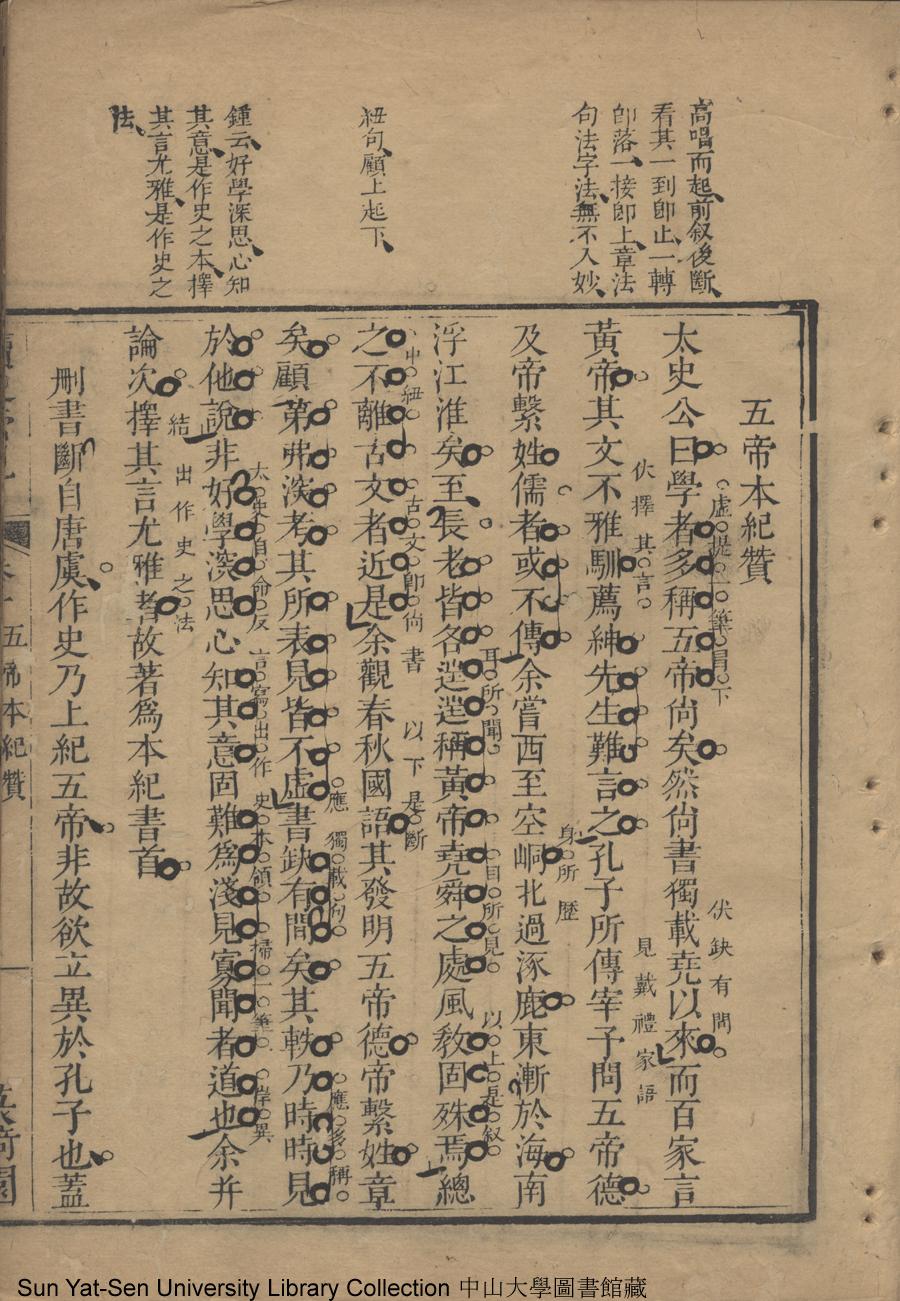 高唱而起前叙後斷
看其一到即止一轉
即落一接即上章法
句法字法無不入妙
紐句顧上起下
鍾云好學深思心知
其意是作史之本擇
其言尤雅是作史之
法
五帝本紀贊
太史公曰學者多稱五帝尙矣然尙書獨載堯以來而百家言
虛提一筆冒下
伏缺有間
黃帝其文不雅馴薦紳先生難言之孔子所傳宰予問五帝德
伏擇其言
見戴禮家語
及帝繫姓儒者或不傳余嘗西至空峒北過涿鹿東漸於海南
身所歷
浮江淮矣至長老皆各逞逞稱黃帝堯舜之處風敎固殊焉總
耳所聞
目所見
以上是叙
之不離古文者近是余觀春秋國語其發明五帝德帝繫姓章
中紐
古文卽尙書
以下是斷
矣顧第弗深考其所表見皆不虛書缺有間矣其軼乃時時見
應獨載句
應多稱
於他說非好學深思心知其意固難爲淺見寡聞者道也余幷
太史自命反言寫出作史本領
掃一筆
岸異
論次擇其言尤雅者故著爲本紀書首
結出作史之法
刪書斷自唐虞作史乃上紀五帝非故欲立異於孔子也蓋
五帝本紀贊
Sun Yat-Sen University Library Collection 中山大學圖書館藏